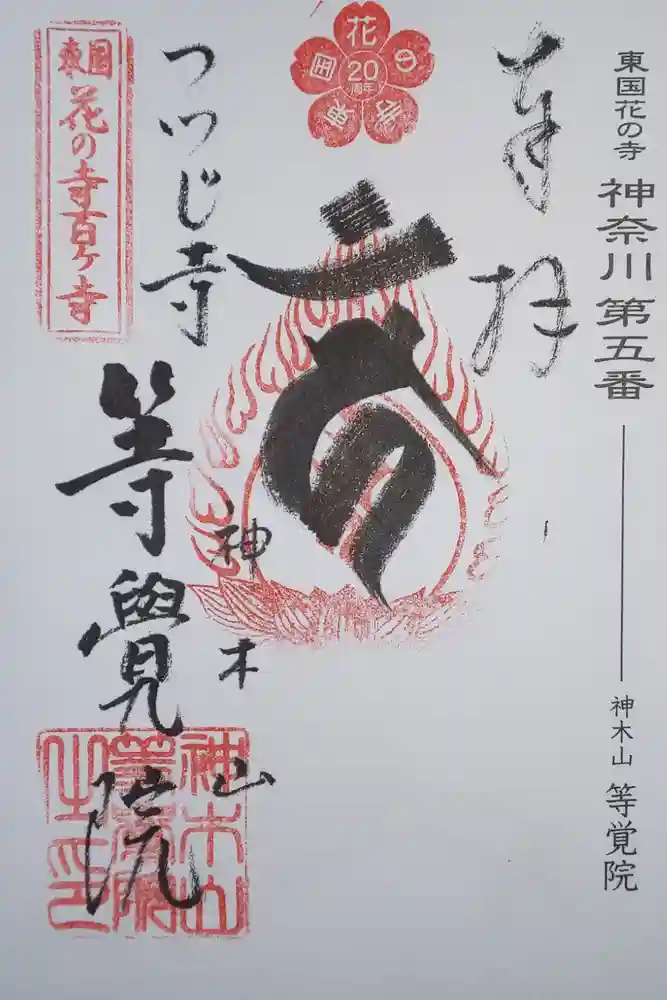 東国花の寺 神奈川 第五番
神木山 等覚院
奉拝
花の寺 東国
20
周年
神木山
つつじ寺
等覺院
東国
花の寺百ヶ寺
神木山
等覺院
之印